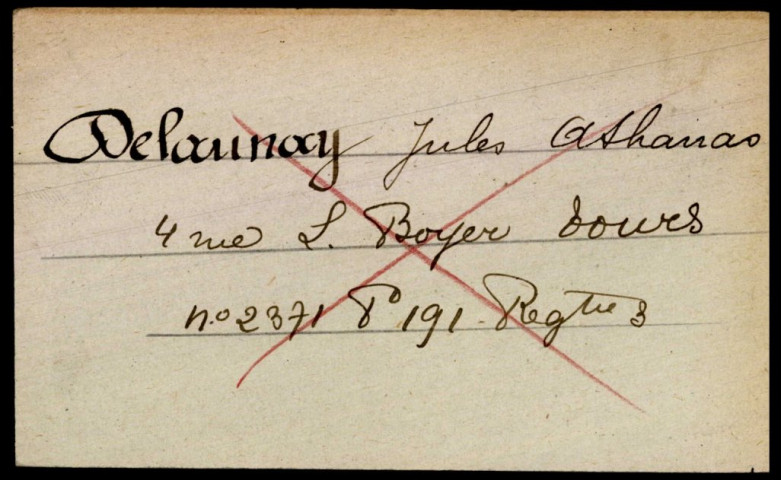 Delaunay Jules Athanas
4 rue L. Boyer Tours
n.o 2371 Po 191. Regtre 3